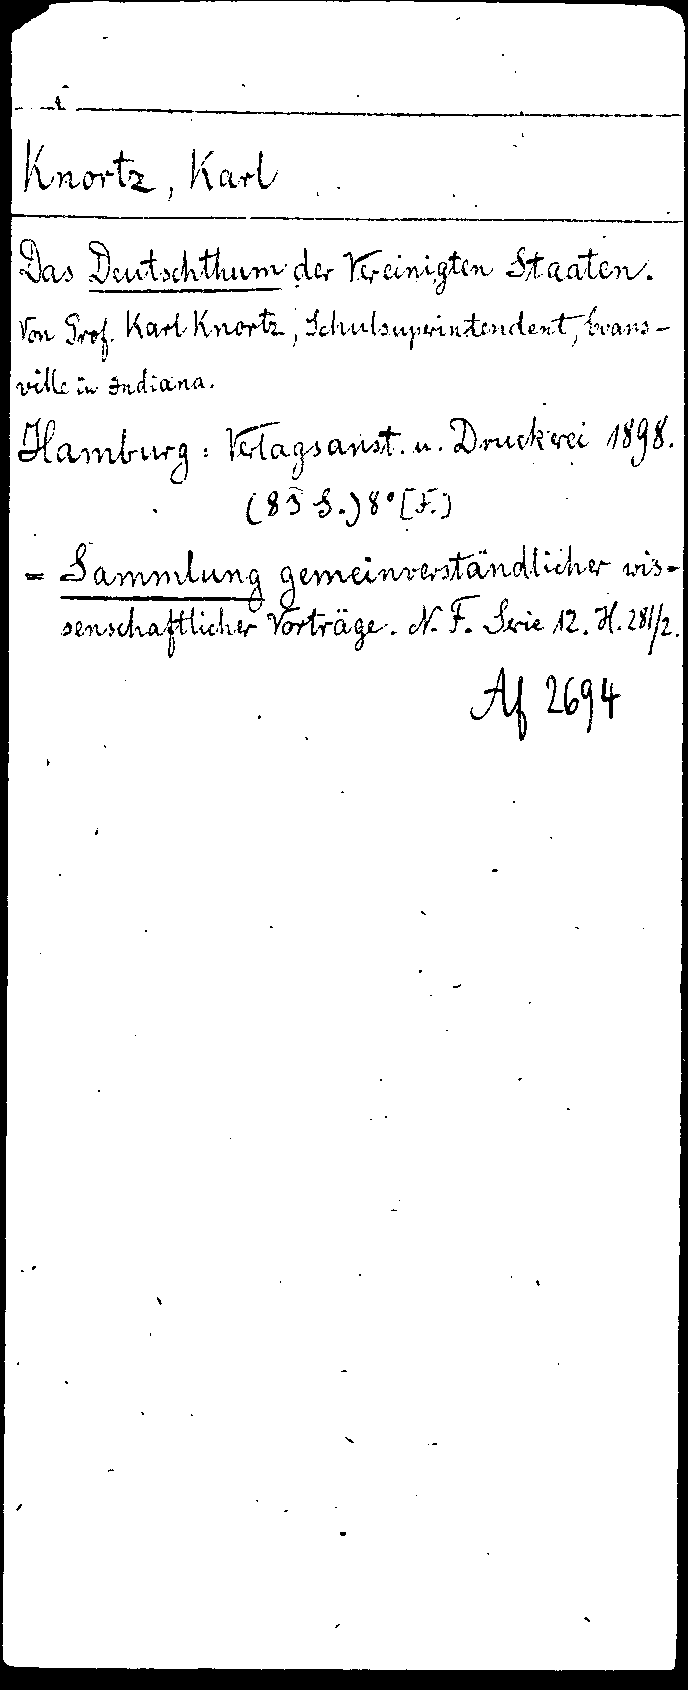 Knortz, Karl
Das Deutschthum der Vereinigten Staaten.
Von Prof. Karl Knortz, Schulsuperintendent, Evans-
ville in Indiana.
Hamburg: Verlagsanst. u. Druckerei 1898.
(83 S.) 8° [F.]
= Sammlung gemeinverständlicher wis-
senschaftlicher Vorträge. N. F. Serie 12. H. 281/2.
Af 2694